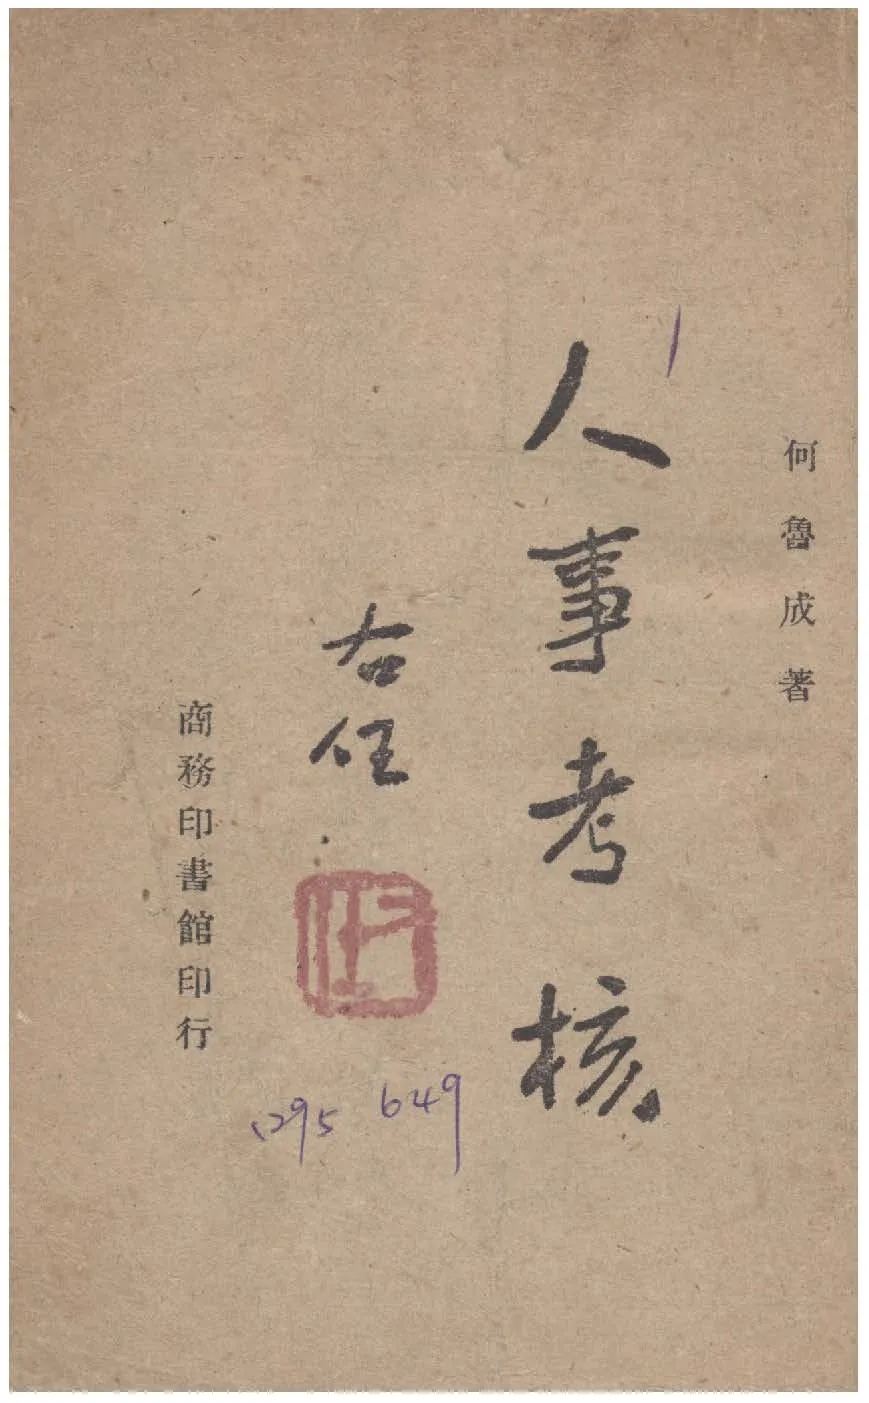 何魯成著
人事考核
右任
商務印書館印行
1295 649